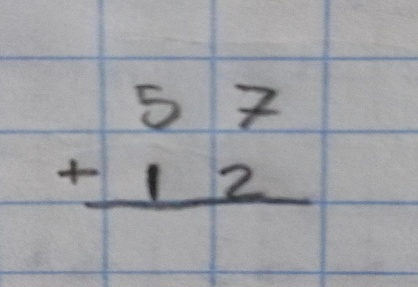 5 7
+ 1 2